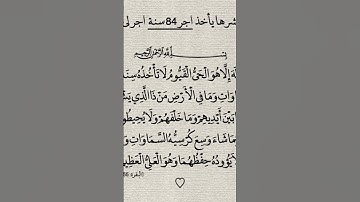 شرها يأخذ اجر 84 سنة اجر لي
بسم الله الرحمن الرحيم
إِلَّا هُوَ الْحَيُّ الْقَيُّومُ لَا تَأْخُذُهُ سِنَ
وَاتِ وَمَا فِي الْأَرْضِ مَنْ ذَا الَّذِي يَشْ
بَيْنَ أَيْدِيهِمْ وَمَا خَلْفَهُمْ وَلَا يُحِيطُو
مَا شَاءَ وَسِعَ كُرْسِيُّهُ السَّمَاوَاتِ وَ
لَا يَؤُودُهُ حِفْظُهُمَا وَهُوَ الْعَلِيُّ الْعَظِيمُ